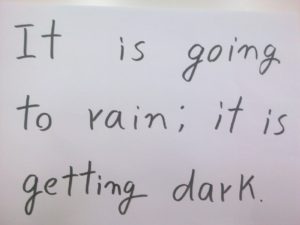 It is going
to rain; it is
getting dark.